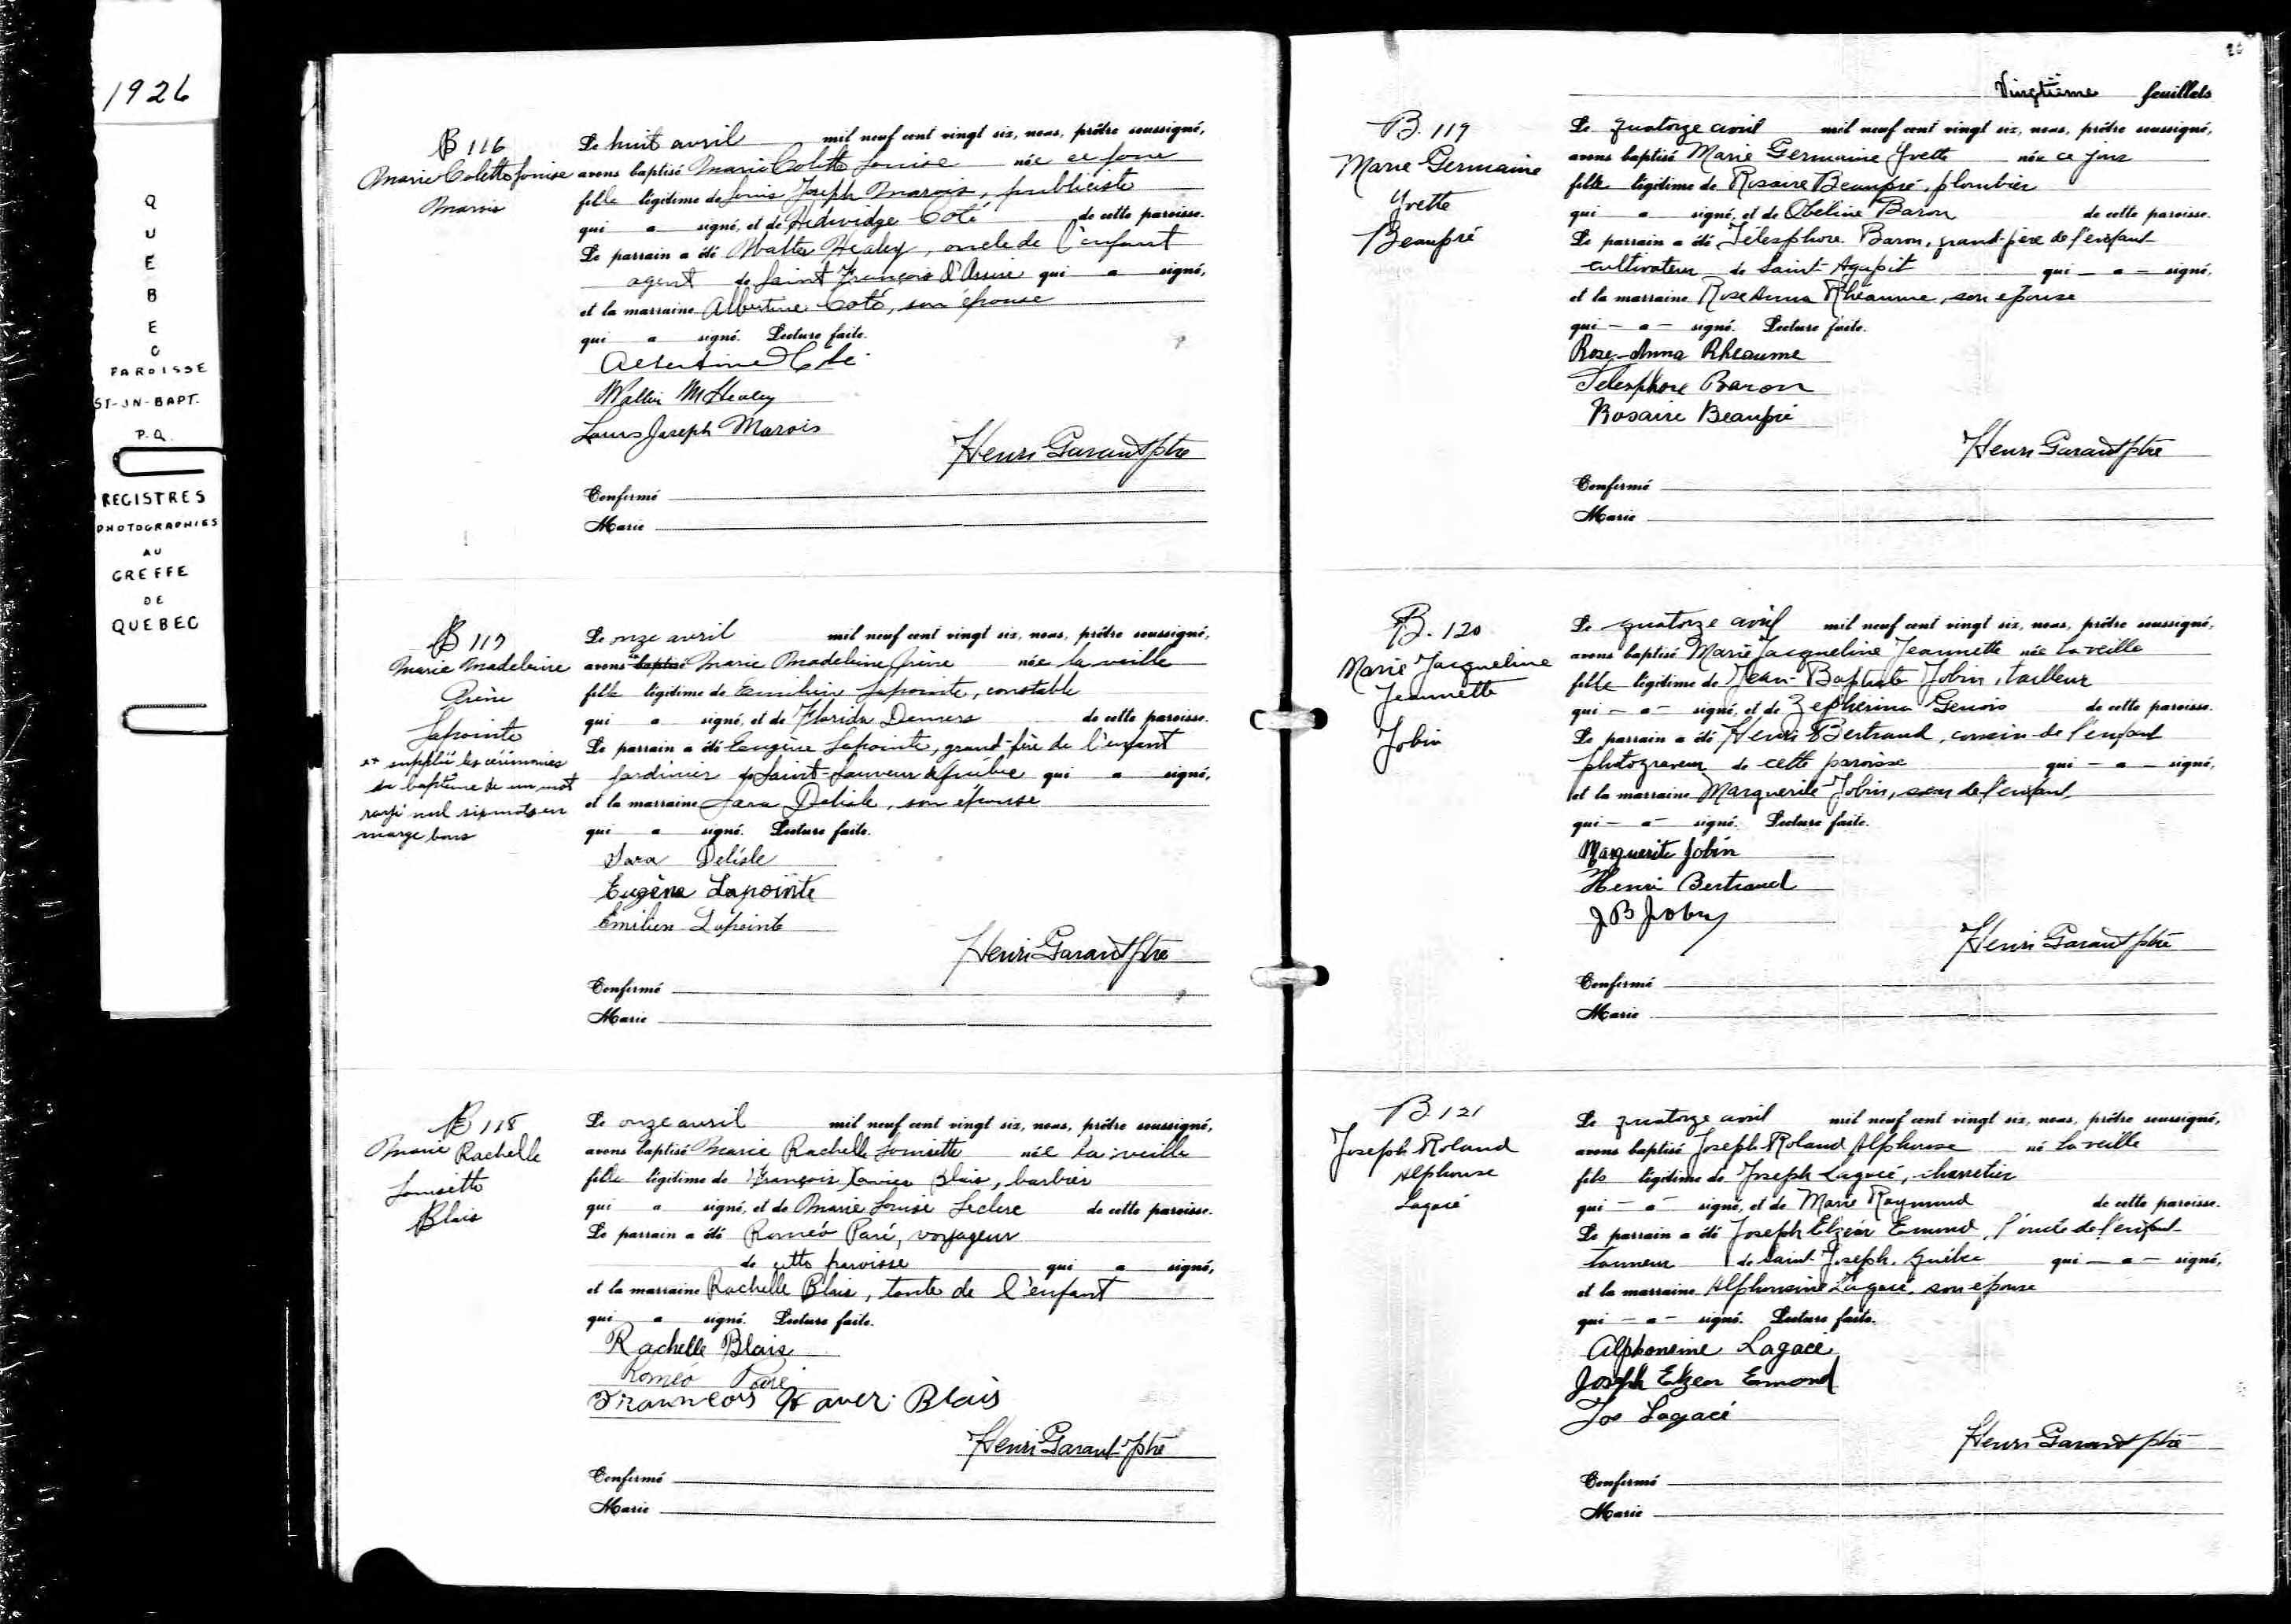 1926
QUEBEC
PAROISSE
ST-JN-BAPT.
P.Q.
REGISTRES
PHOTOGRAPHIES
AU
GREFFE
DE
QUEBEC
B 116
Marie Colette Louise
Marois
Le huit avril mil neuf cent vingt six, nous, prêtre soussigné,
avons baptisé Marie Colette Louise née ce jour
fille légitime de Louis Joseph Marois, publiciste
qui a signé, et de Hedwidge Coté de cette paroisse.
Le parrain a été Walter Healey, oncle de l'enfant
agent de Saint François d'Assise qui a signé,
et la marraine Albertine Coté, son épouse
qui a signé. Lecture faite.
Albertine Coté
Walter M Healey
Louis Joseph Marois
Henri Garant ptre
Confirmé
Marié
B 117
Marie Madeleine
Irène
Lapointe
x+ supplié les cérémonies
du baptême de un mot
rayé nul six mots en
marge bons
Le onze avril mil neuf cent vingt six, nous, prêtre soussigné,
avons baptisé Marie Madeleine Irène née la veille
fille légitime de Emilien Lapointe, constable
qui a signé, et de Florida Demers de cette paroisse.
Le parrain a été Eugène Lapointe, grand-père de l'enfant
jardinier de Saint-Sauveur de Québec qui a signé,
et la marraine Sara Delisle, son épouse
qui a signé. Lecture faite.
Sara Delisle
Eugène Lapointe
Emilien Lapointe
Henri Garant ptre
Confirmé
Marié
B 118
Marie Rachelle
Louisette
Blais
Le onze avril mil neuf cent vingt six, nous, prêtre soussigné,
avons baptisé Marie Rachelle Louisette née la veille
fille légitime de François Xavier Blais, barbier
qui a signé, et de Marie Louise Leclerc de cette paroisse.
Le parrain a été Roméo Paré, voyageur
de cette paroisse qui a signé,
et la marraine Rachelle Blais, tante de l'enfant
qui a signé. Lecture faite.
Rachelle Blais
Roméo Paré
Francois Xaver Blais
Henri Garant ptre
Confirmé
Marié
20
Vingtième feuillets
B. 119
Marie Germaine
Yvette
Beaupré
Le quatorze avril mil neuf cent vingt six, nous, prêtre soussigné,
avons baptisé Marie Germaine Yvette née ce jour
fille légitime de Rosaire Beaupré, plombier
qui - a - signé, et de Obéline Baron de cette paroisse.
Le parrain a été Télesphore Baron, grand-père de l'enfant
cultivateur de Saint-Agapit qui - a - signé,
et la marraine Rose Anna Rhéaume, son épouse
qui - a - signé. Lecture faite.
Rose-Anna Rheaume
Telesphore Baron
Rosaire Beaupré
Henri Garant ptre
Confirmé
Marié
B. 120
Marie Jacqueline
Jeannette
Jobin
Le quatorze avril mil neuf cent vingt six, nous, prêtre soussigné,
avons baptisé Marie Jacqueline Jeannette née la veille
fille légitime de Jean-Baptiste Jobin, tailleur
qui - a - signé, et de Zepherina Genois de cette paroisse.
Le parrain a été Henri Bertrand, cousin de l'enfant
photograveur de cette paroisse qui - a - signé,
et la marraine Marguerite Jobin, sœur de l'enfant
qui - a - signé. Lecture faite.
Marguerite Jobin
Henri Bertrand
J B Jobin
Henri Garant ptre
Confirmé
Marié
B. 121
Joseph Roland
Alphonse
Lagacé
Le quatorze avril mil neuf cent vingt six, nous, prêtre soussigné,
avons baptisé Joseph Roland Alphonse né la veille
fils légitime de Joseph Lagacé, charretier
qui - a - signé, et de Marie Raymond de cette paroisse.
Le parrain a été Joseph Elzéar Emond, l'oncle de l'enfant
tanneur de Saint-Joseph, Québec qui - a - signé,
et la marraine Alphonsine Lagacé, son épouse
qui - a - signé. Lecture faite.
Alphonsine Lagacé
Joseph Elzear Emond
Jos Lagacé
Henri Garant ptre
Confirmé
Marié